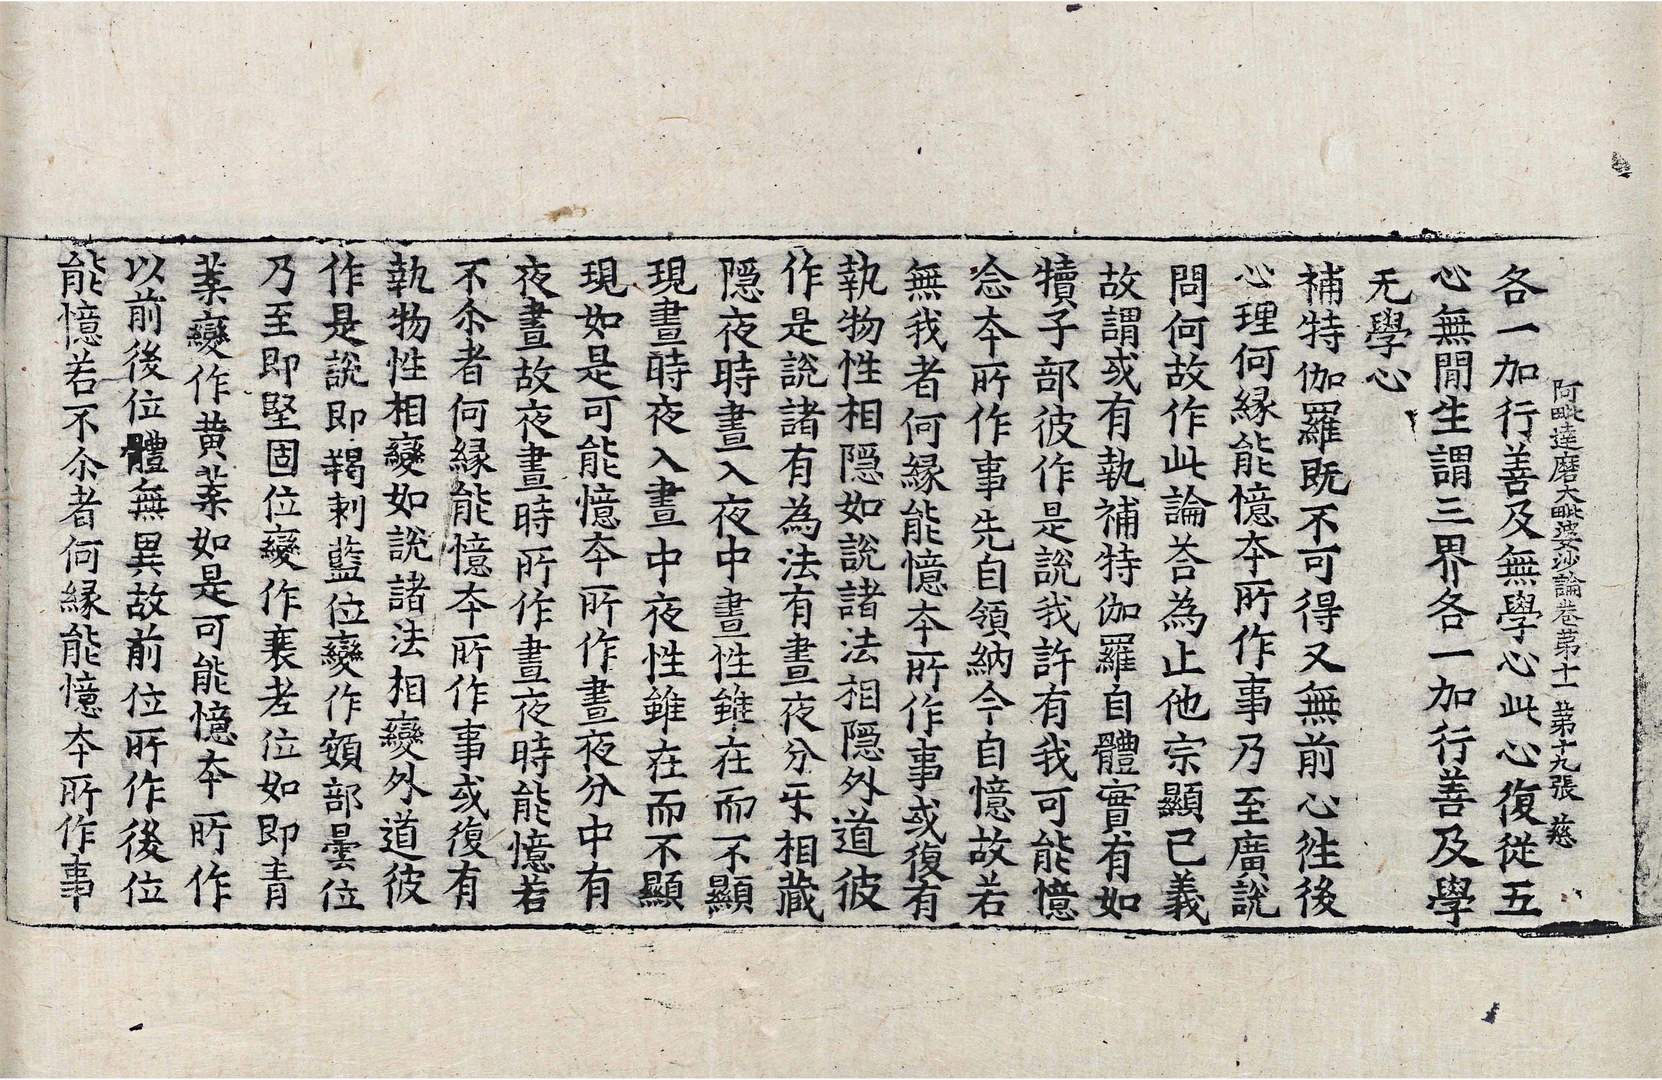 阿毗達磨大毗婆沙論卷苐十一 苐十九張 慈
各一加行善及無學心此心復從五
心無閒生謂三界各一加行善及學
无學心
補特伽羅旣不可得又無前心徃後
心理何緣能憶夲所作事乃至廣說
問何故作此論荅為止他宗顯己義
故謂或有執補特伽羅自體實有如
犢子部彼作是說我許有我可能憶
念夲所作事先自領納今自憶故若
無我者何緣能憶夲所作事或復有
執物性相隱如說諸法相隱外道彼
作是說諸有為法有晝夜分乐相藏
隱夜時晝入夜中晝性雖在而不顯
現晝時夜入晝中夜性雖在而不顯
現如是可能憶夲所作晝夜分中有
夜晝故夜晝時所作晝夜時能憶若
不尒者何緣能憶夲所作事或復有
執物性相變如說諸法相變外道彼
作是說即羯剌藍位變作頞部曇位
乃至即堅固位變作衰老位如即青
葉變作黄葉如是可能憶夲所作
以前後位體無異故前位所作後位
能憶若不尒者何緣能憶夲所作事